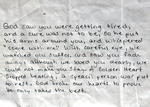 God saw you were getting tired,
and a cure was not to be. So He put
His arms around you, and whispered
"Come with me". With careful eye, we
watched you suffer, and saw you fade
away. Although we loved you dearly, we
could not make you stay. A Golden Heart
stopped beating, a special person was put
to rest. God broke our hearts to prove
he only takes the best.